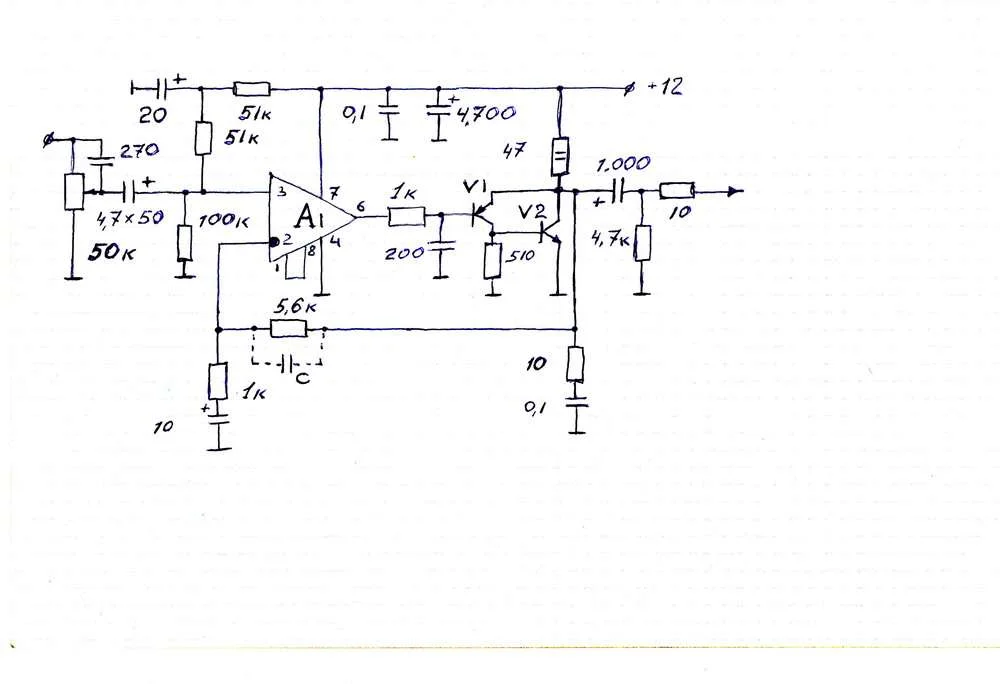 +12
+
20
51к
51к
0,1
+
4,700
270
47
1.000
+
4,7×50
50к
100к
3
7
A1
6
2
4
1
8
1к
200
V1
V2
510
+
4,7к
10
5,6к
C
1к
+
10
10
0,1